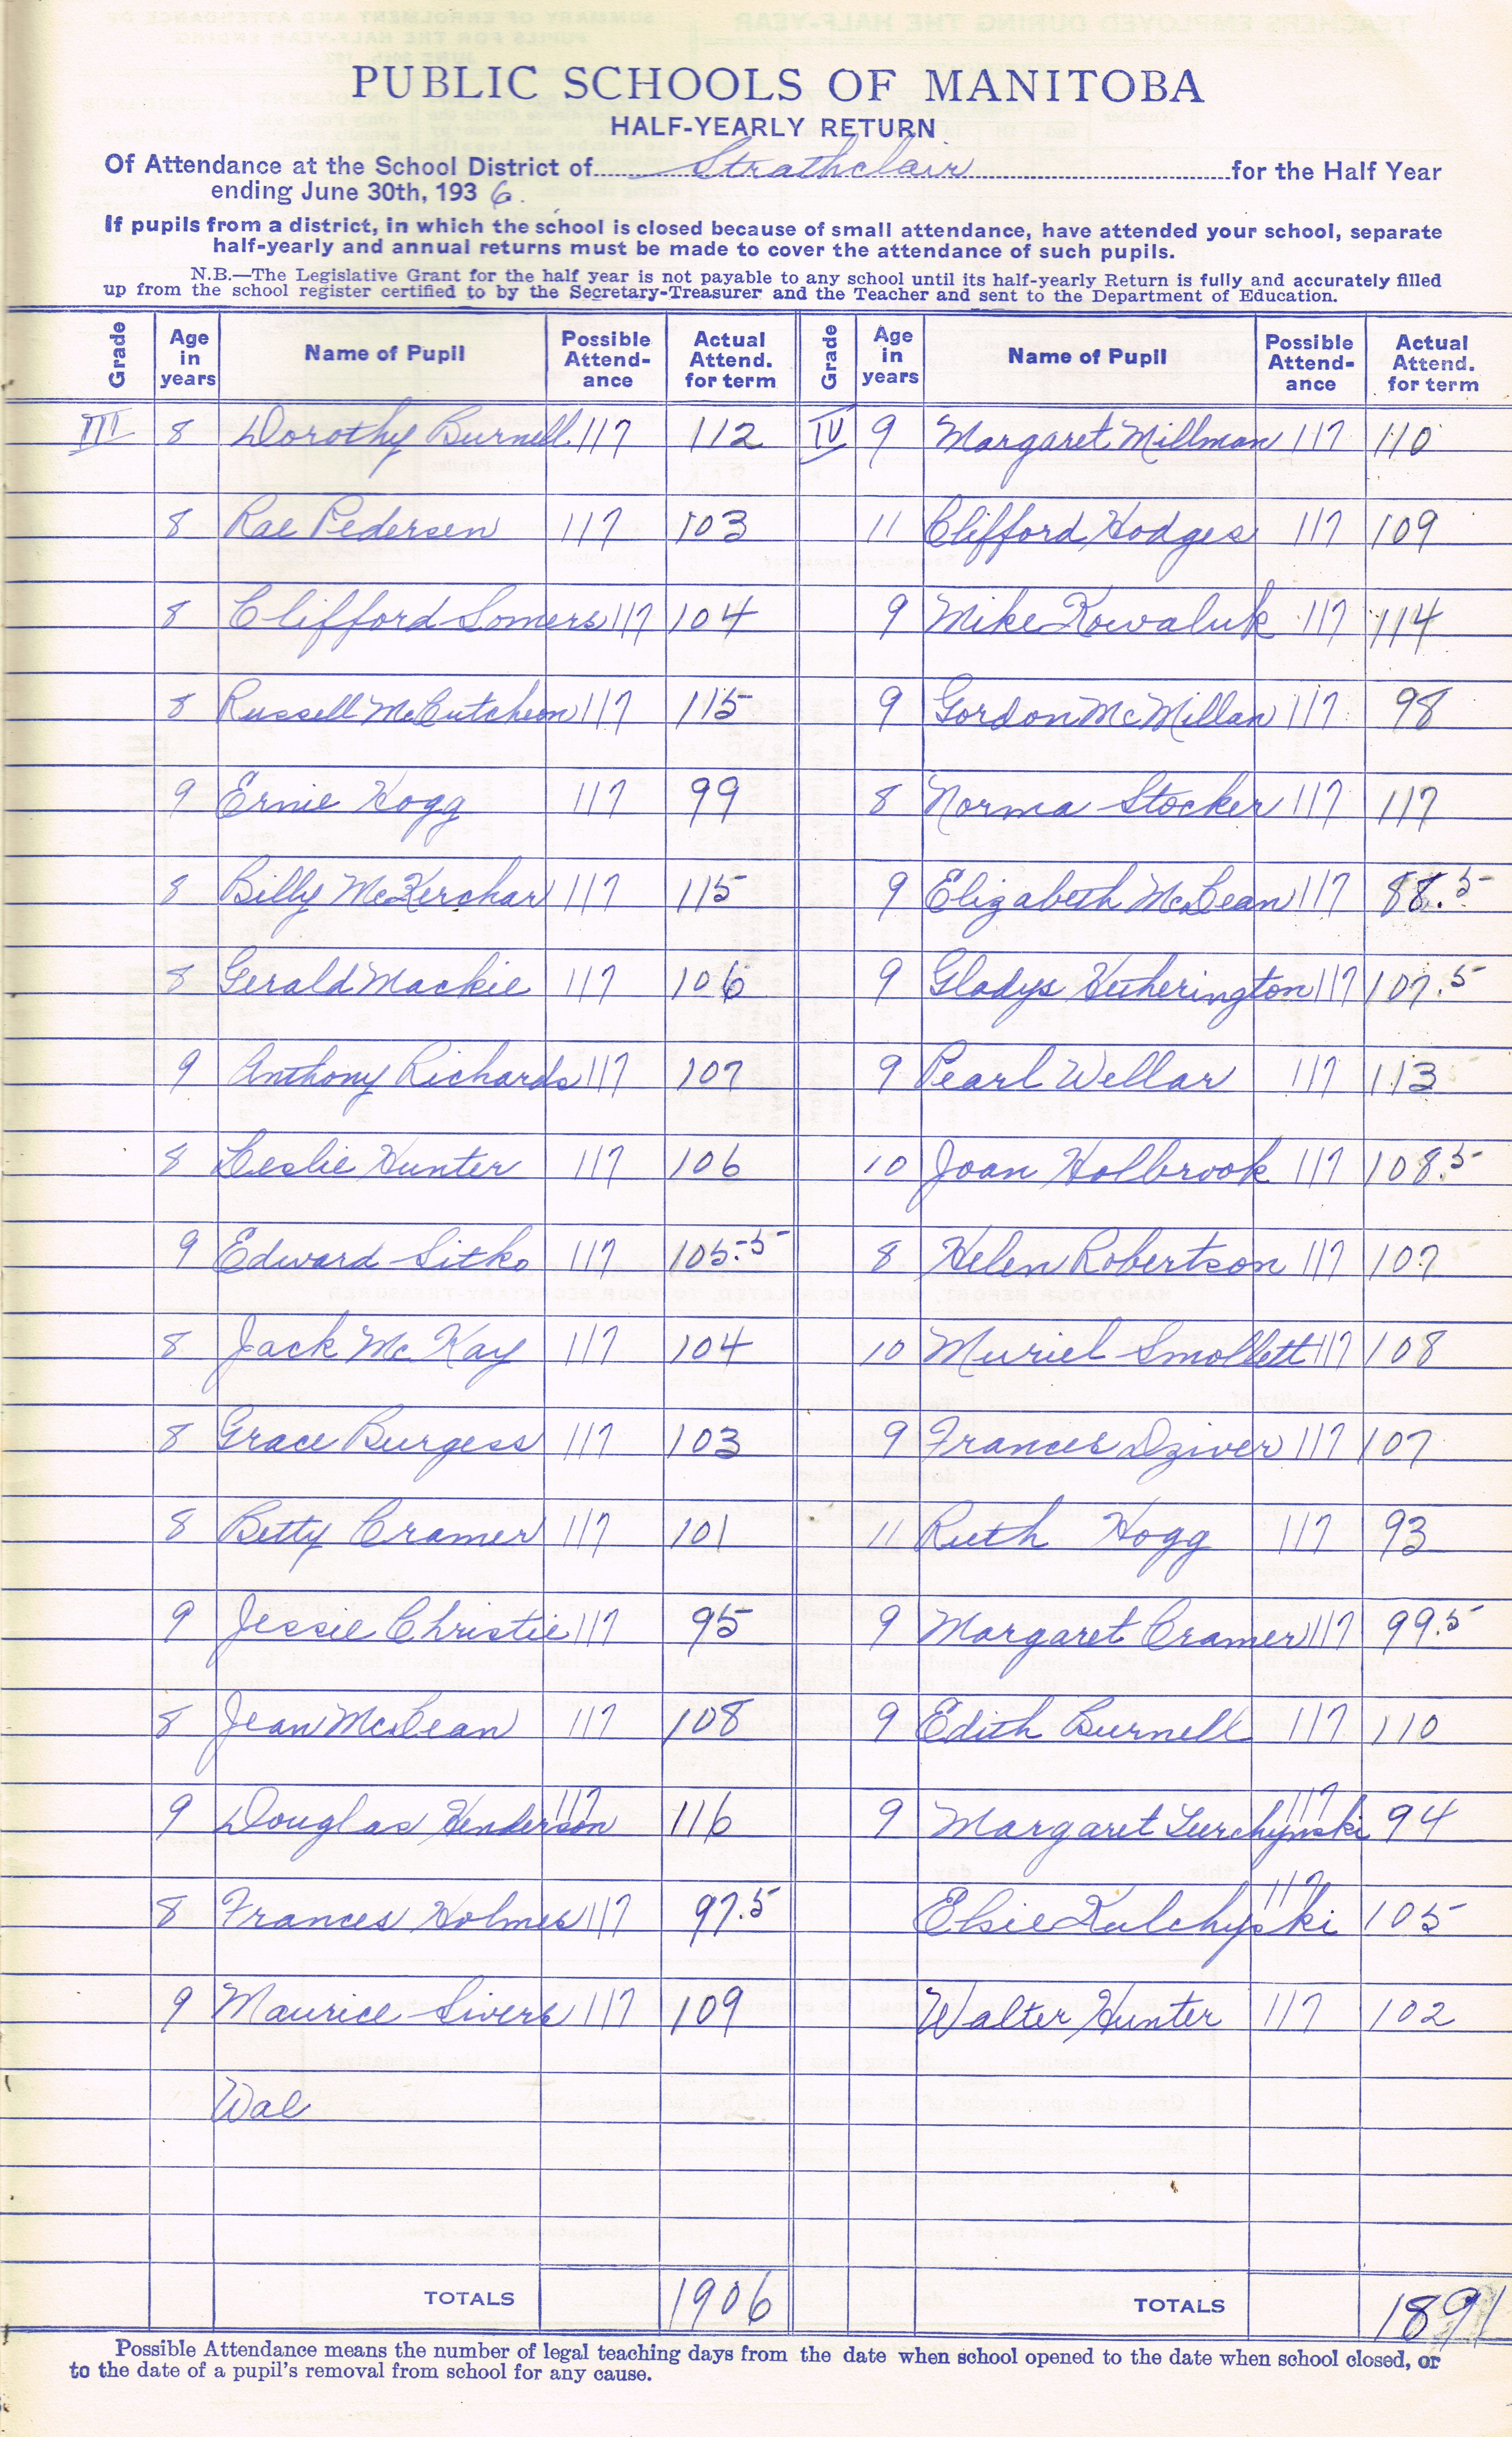 PUBLIC SCHOOLS OF MANITOBA
HALF-YEARLY RETURN
Of Attendance at the School District of Strathclair for the Half Year
ending June 30th, 1936.
If pupils from a district, in which the school is closed because of small attendance, have attended your school, separate
half-yearly and annual returns must be made to cover the attendance of such pupils.
N.B.—The Legislative Grant for the half year is not payable to any school until its half-yearly Return is fully and accurately filled
up from the school register certified to by the Secretary-Treasurer and the Teacher and sent to the Department of Education.
Grade Age in years Name of Pupil Possible Attend-ance Actual Attend. for term Grade Age in years Name of Pupil Possible Attend-ance Actual Attend. for term
III 8 Dorothy Burnell 117 112 IV 9 Margaret Millman 117 110
8 Rae Pedersen 117 103 11 Clifford Hodges 117 109
8 Clifford Somers 117 104 9 Mike Kowaluk 117 114
8 Russell McCutcheon 117 115 9 Gordon McMillan 117 98
9 Ernie Hogg 117 99 8 Norma Stocker 117 117
8 Billy McKerchar 117 115 9 Elizabeth McLean 117 88.5
8 Gerald Mackie 117 106 9 Gladys Hetherington 117 107.5
9 Anthony Richards 117 107 9 Pearl Wellar 117 113
8 Leslie Hunter 117 106 10 Joan Holbrook 117 108.5
9 Edward Sitko 117 105.5 8 Helen Robertson 117 107
8 Jack McKay 117 104 10 Muriel Smollett 117 108
8 Grace Burgess 117 103 9 Frances Dziver 117 107
8 Betty Cramer 117 101 11 Ruth Hogg 117 93
9 Jessie Christie 117 95 9 Margaret Cramer 117 99.5
8 Jean McLean 117 108 9 Edith Burnell 117 110
9 Douglas Henderson 117 116 9 Margaret Turchynski 117 94
8 Frances Holmes 117 97.5 Elsie Kulchyski 117 105
9 Maurice Sivers 117 109 Walter Hunter 117 102
Wal
TOTALS 1906 TOTALS 1891
Possible Attendance means the number of legal teaching days from the date when school opened to the date when school closed, or
to the date of a pupil's removal from school for any cause.